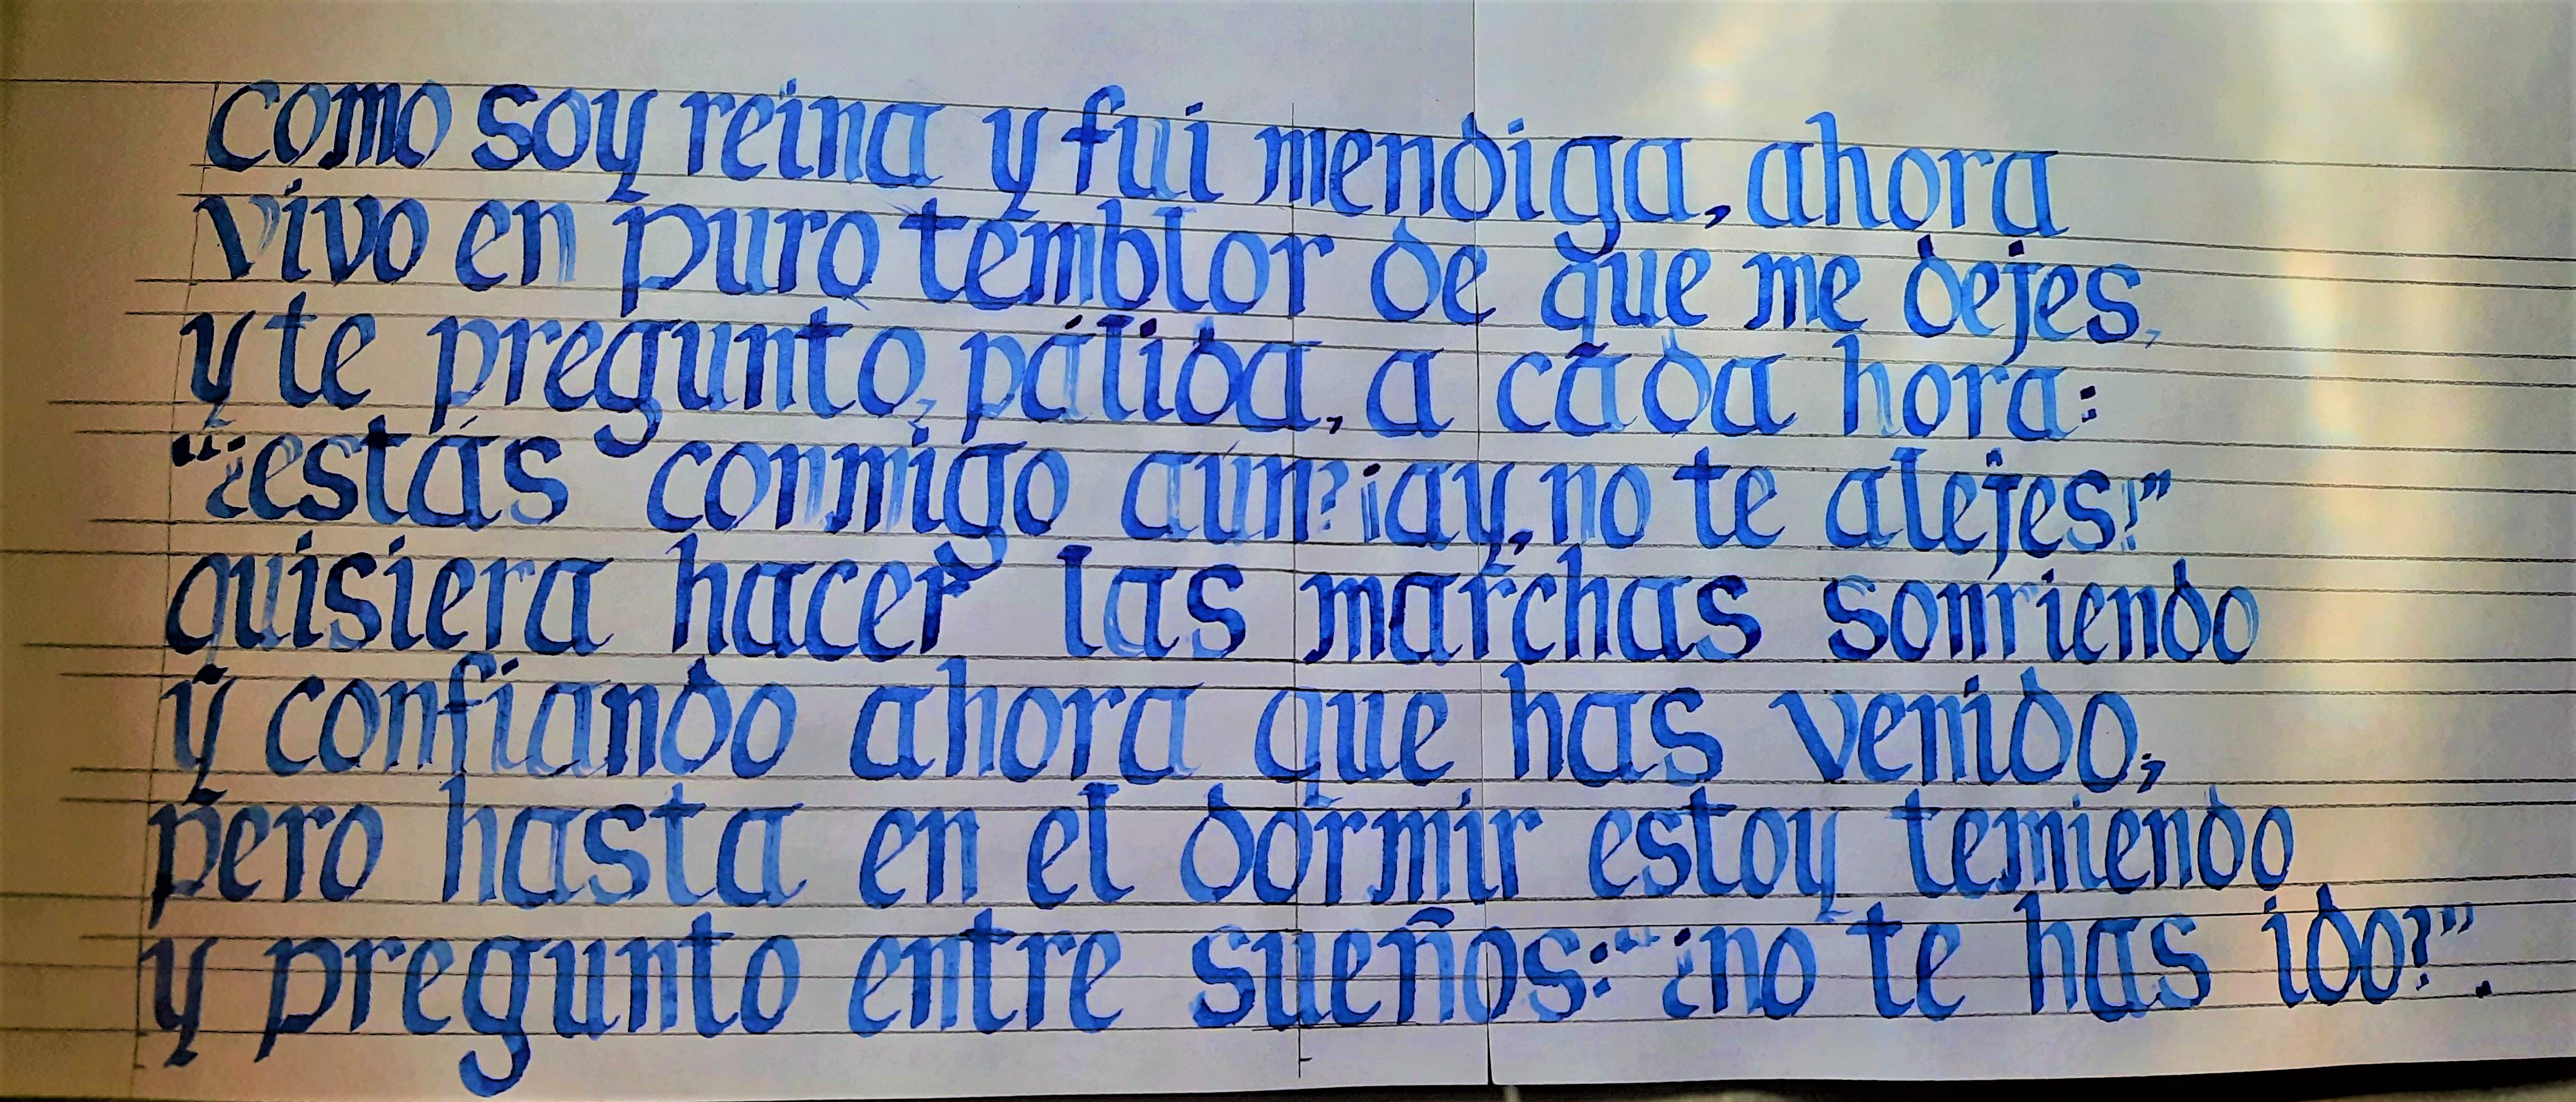 como soy reina y fui mendiga, ahora
vivo en puro temblor de que me dejes,
y te pregunto, pálida, a cada hora:
“¿estás conmigo aún? ¡ay, no te alejes!”
quisiera hacer las marchas sonriendo
y confiando ahora que has venido;
pero hasta en el dormir estoy temiendo
y pregunto entre sueños: “¿no te has ido?”.